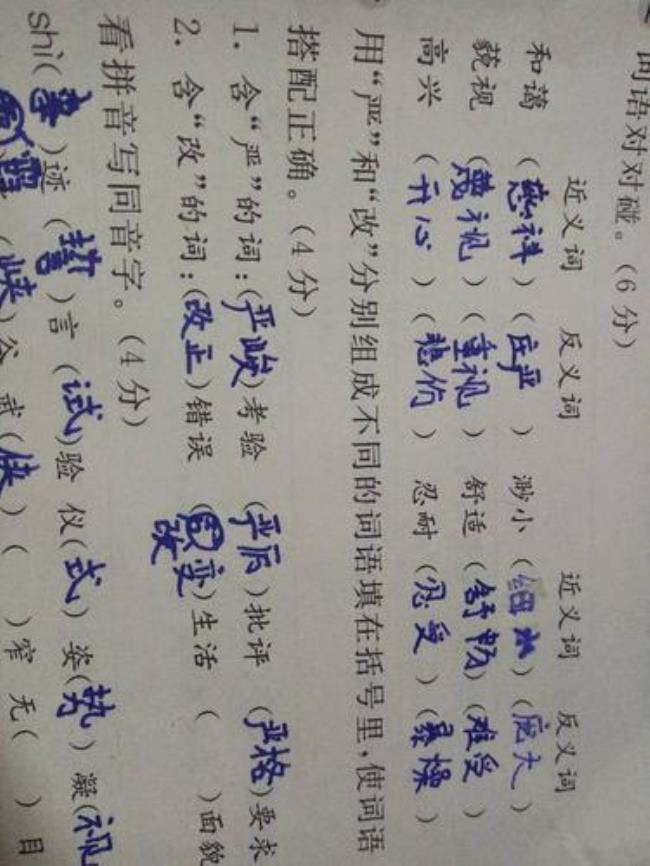 词语对对碰。(6分)
近义词 反义词 近义词 反义词
和蔼 (慈祥) (庄严) 渺小 (细小) (庞大)
藐视 (蔑视) (重视) 舒适 (舒畅) (难受)
高兴 (开心) (悲伤) 忍耐 (忍受) (暴燥)
用“严”和“改”分别组成不同的词语填在括号里,使词语
搭配正确。(4分)
1. 含“严”的词:(严峻)考验 (严厉)批评 (严格)要求
2. 含“改”的词:(改正)错误 (改变)生活 ( )面貌
看拼音写同音字。(4分)
shi( )迹 (誓)言 (试)验 仪(式) 姿(势) 凝(视
(峡)谷 武(侠) ( )窄 无( )目